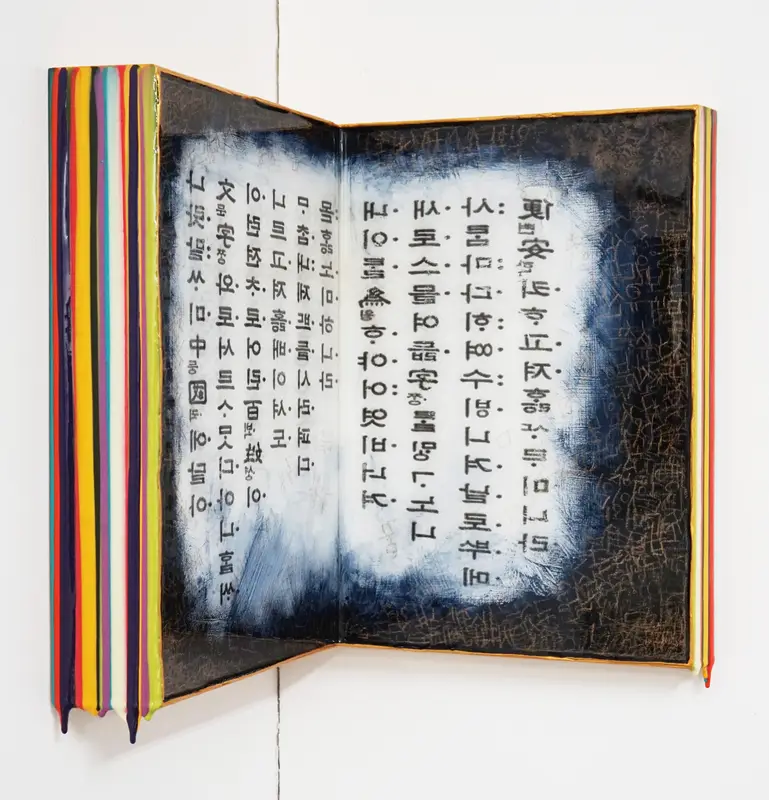 나랏말ᄊᆞ미中듕國귁에달아
文문字ᄍᆞᆼ와로서르ᄉᆞᄆᆞᆺ디아니ᄒᆞᆯᄊᆡ
이런젼ᄎᆞ로어린百ᄇᆡᆨ姓셩이
니르고져호ᇙ배이셔도
ᄆᆞᄎᆞᆷ내제ᄠᅳ들시러펴디
몯ᄒᆞᇙ노미하니라
내이ᄅᆞᆯ爲윙ᄒᆞ야어엿비너겨
새로스믈여듧字ᄍᆞᆼᄅᆞᆯᄆᆡᇰᄀᆞ노니
사ᄅᆞᆷ마다ᄒᆡᅇᅧ수ᄫᅵ니겨날로ᄡᅮ메
便뼌安ᅙᅡᆫ킈ᄒᆞ고져ᄒᆞᇙᄯᆞᄅᆞ미니라